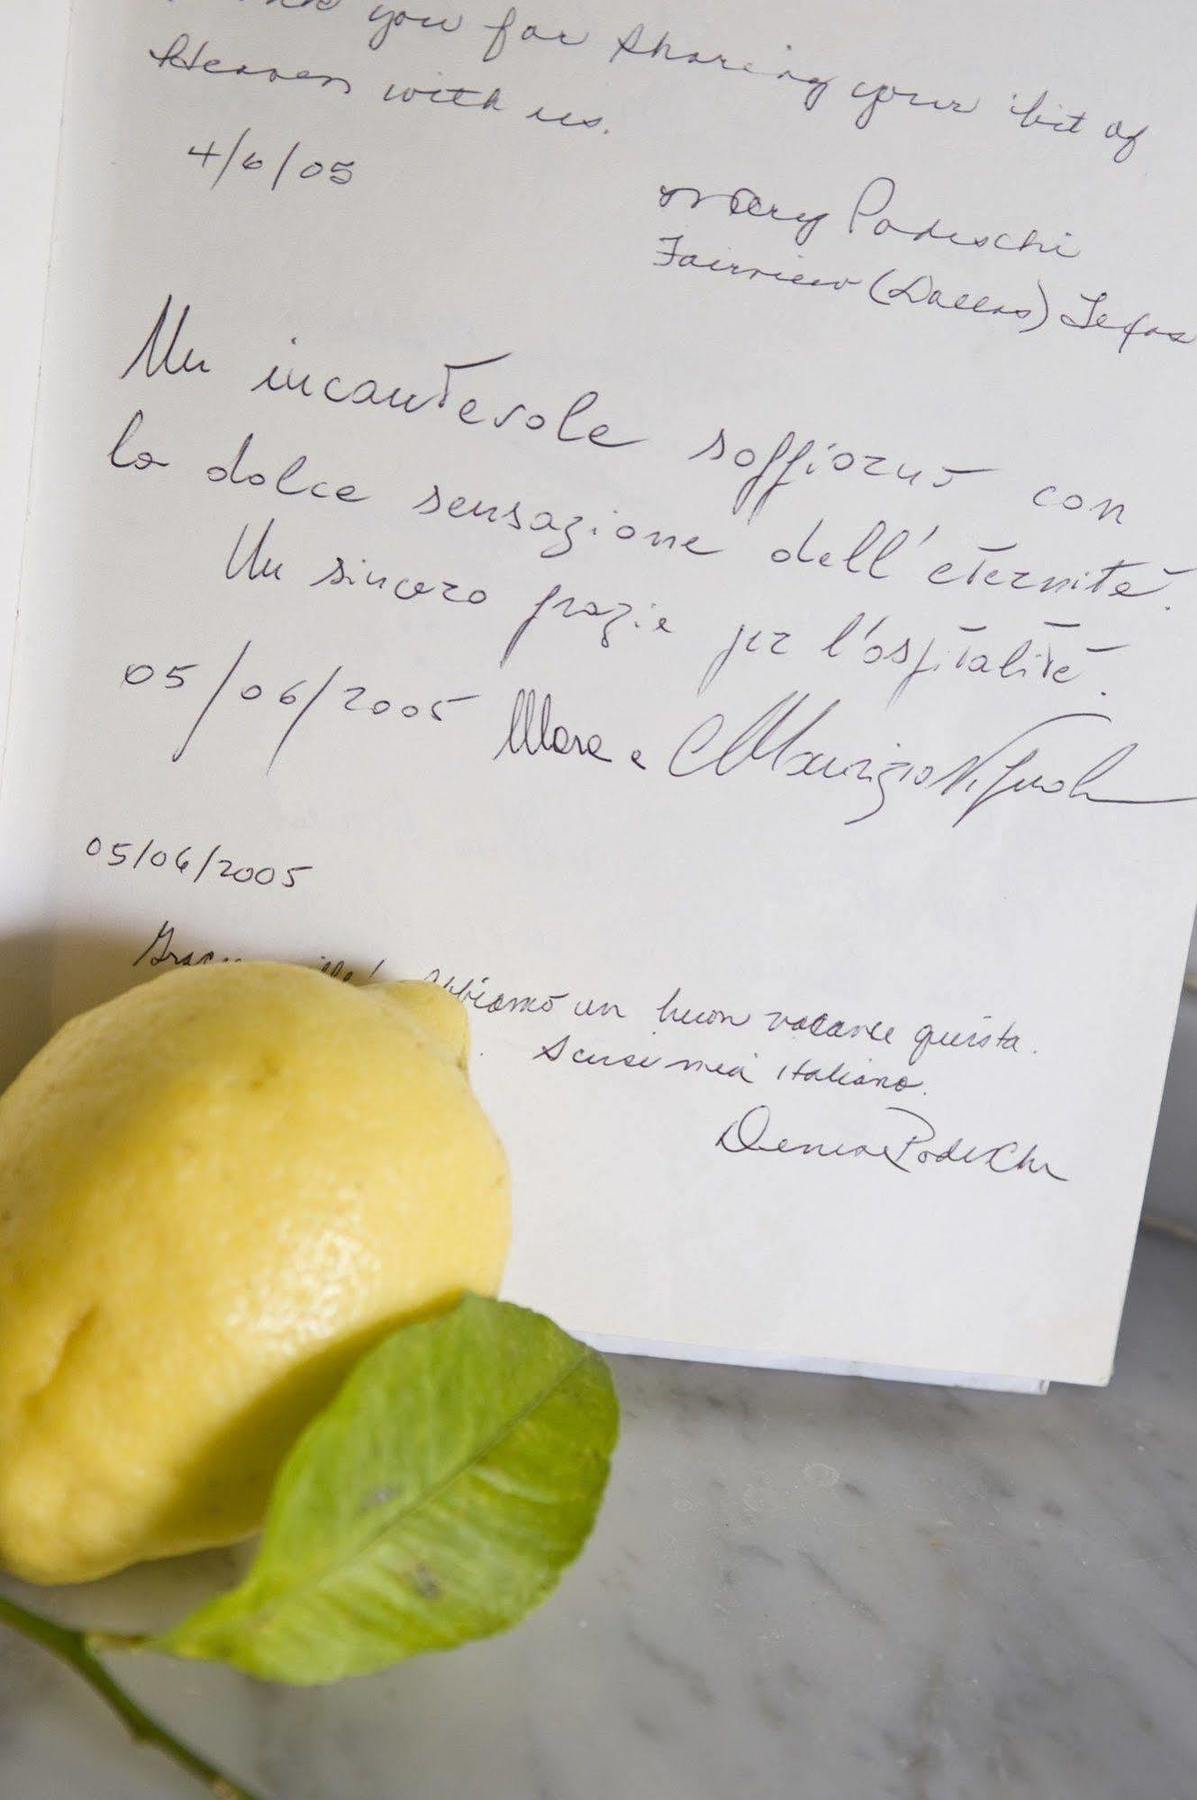 you for sharing your bit of
Heaven with us.
4/6/05
Mary Podeschi
Fairview (Dallas) Texas
Un incantevole soffiorno con
la dolce sensazione dell'eternità.
Un sincero grazie per l'ospitalità.
05/06/2005 Mara e Maurizio
05/06/2005
abbiamo un buon vacance questa.
Scusi mia italiano.
Podeschi